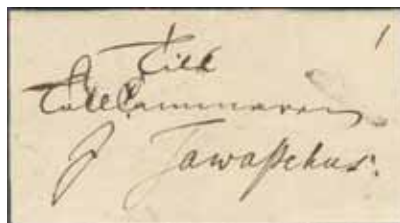 Till
Tullkammaren
i Tawastehus.